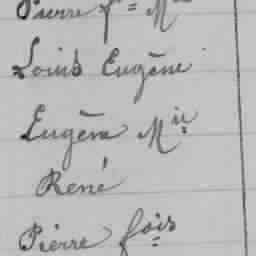 Pierre fs Mie
Louis Eugène
Eugène Mie
René
Pierre fois